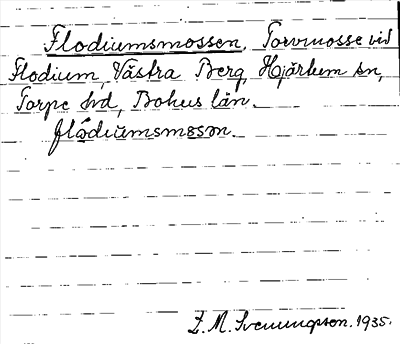 Flodiumsmossen, Torvmosse vid
Flodium, Västra Berg, Hjärtum sn,
Torpe hd, Bohus län.
flódiumsmssn.
M. Svenungsson. 1935.